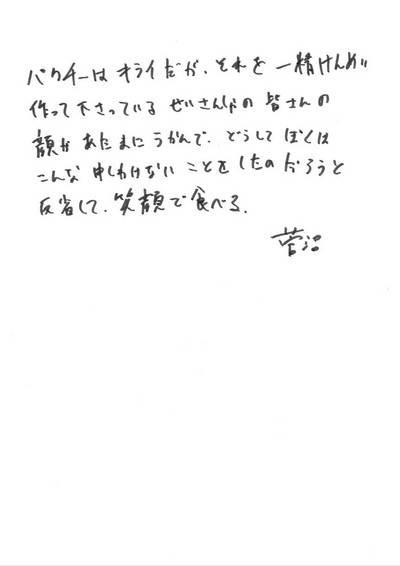 パクチーはキライだが、それを一精けんめい
作って下さっているせいさんしゃの皆さんの
顔があたまにうかんで、どうしてぼくは
こんな申しわけないことをしたのだろうと
反省して、笑顔で食べる。
菅沼